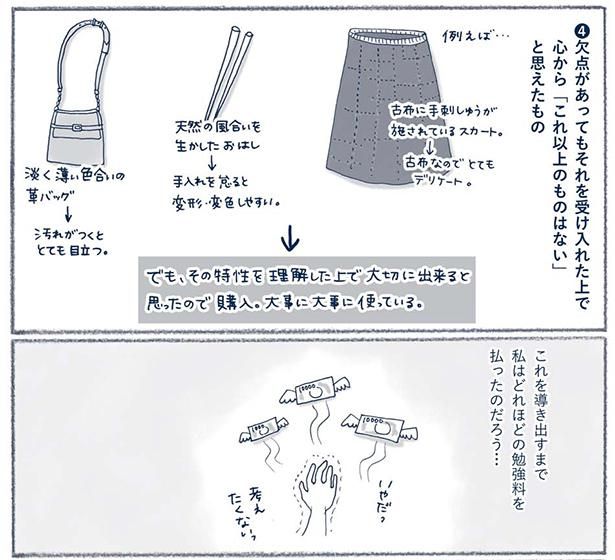 ❹欠点があってもそれを受け入れた上で
心から「これ以上のものはない」
と思えたもの
例えば…
古布に手刺しゅうが
施されているスカート。
↓
古布なのでとても
デリケート。
天然の風合いを
生かしたおはし
↓
手入れを怠ると
変形・変色しやすい。
淡く薄い色合いの
革バッグ
↓
汚れがつくと
とても目立つ。
↓
でも、その特性を理解した上で大切に出来ると
思ったので購入。大事に大事に使っている。
これを導き出すまで
私はどれほどの勉強料を
払ったのだろう…
10000
10000
10000
いやだっ
考え
たくないっ